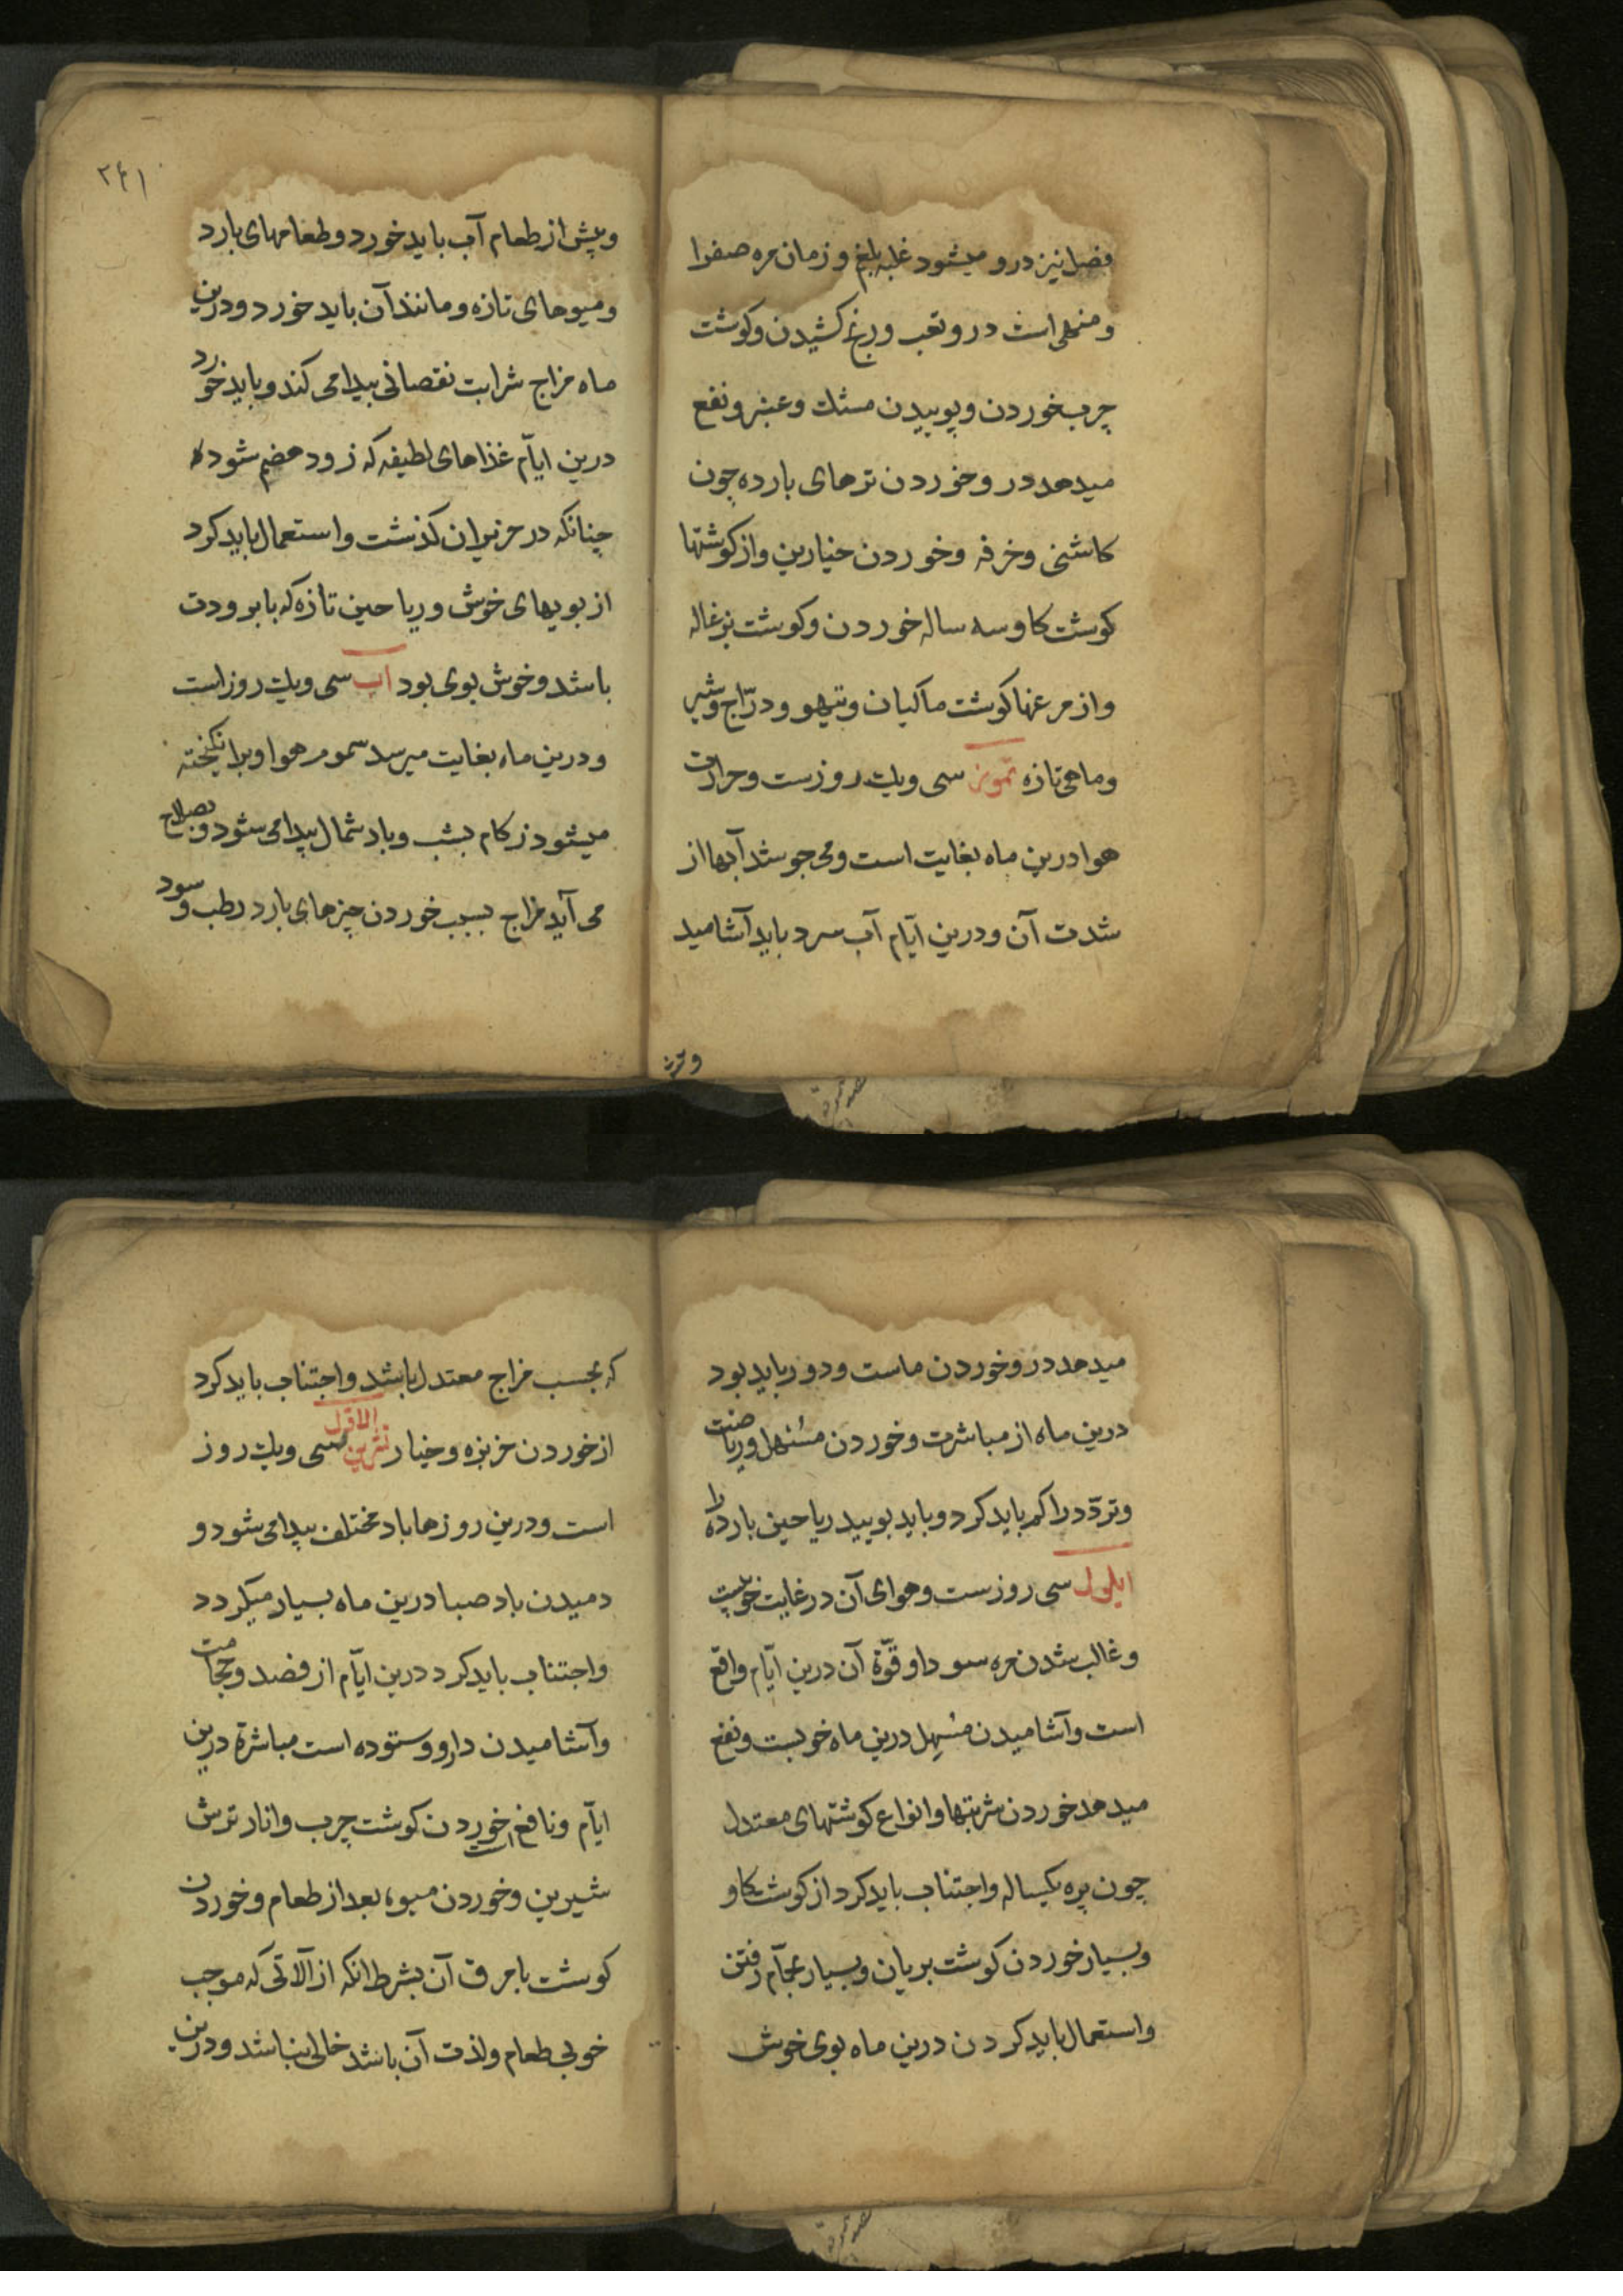 فصل نیز درو میشود غلبه بلغم و زمان مره صفرا
و منهی است درو تعب و رنج کشیدن و کوشت
چرب خوردن و بوییدن مسک و عنبر و نفع
میدهد درو خوردن ترهای بارده چون
کاسنی و خرفه و خوردن خیارین و از کوشتها
کوشت کاو سه ساله خوردن و کوشت بزغاله
و از مرغها کوشت ماکیان و تیهو و درّاج و شیر
و ماهی تازه تموز سی ویک روزست و حرارت
هوا درین ماه بغایت است و می جوشد آبها از
شدت آن و درین ایّام آب سرد باید آشامید
۲۴۱
و پیش از طعام آب باید خورد و طعامهای بارد
و میوهای تازه و مانند آن باید خورد و درین
ماه مزاج شرابت نقصانی پیدا می کند و باید خورد
درین ایّام غذاهای لطیفه که زود هضم شود
چنانکه در حزیران کذشت و استعمال باید کرد
از بویهای خوش و ریاحین تازه که با برودت
باشد و خوش بوی بود آب سی ویک روز است
و درین ماه بغایت میرسد سموم هوا و برانکیخته
میشود زکام بشب و باد شمال پیدا می شود و بصلاح
می آید مزاج بسبب خوردن چیزهای بارد رطب و سود
میدهد درو خوردن ماست و دور باید بود
درین ماه از مباشرت و خوردن مسهل و ریاضت
و تردّد را کم باید کرد و باید بویید ریاحین بارده را
ایلول سی روزست و هوای آن در غایت خوبیست
و غالب شدن مره سودا و قوّة آن درین ایّام واقع
است و آشامیدن مسهل درین ماه خوبست و نفع
میدهد خوردن شربتها و انواع کوشتهای معتدل
چون بره یکساله و اجتناب باید کرد از کوشت کاو
و بسیار خوردن کوشت بریان و بسیار بحمّام رفتن
و استعمال باید کردن درین ماه بوی خوش
که بحسب مزاج معتدل باشد و اجتناب باید کرد
از خوردن خربزه و خیار تشرین الاوّل سی ویک روز
است و درین روزها باد مختلف پیدا می شود و
دمیدن باد صبا درین ماه بسیار میکردد
و اجتناب باید کرد درین ایّام از فصد و حجامت
و آشامیدن دارو و ستوده است مباشرة درین
ایّام و نافع است خوردن کوشت چرب و انار ترش
شیرین و خوردن میوه بعد از طعام و خوردن
کوشت با مرق آن بشرط آنکه از آلاتی که موجب
خوبی طعام و لذت آن باشد خالی نباشد و درین